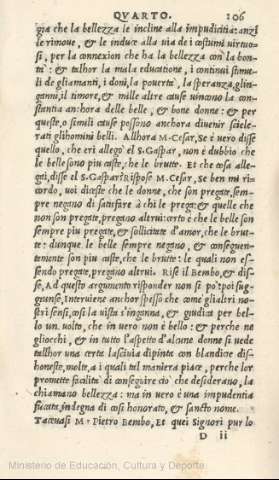 QVARTO. 106
gia che la bellezza le incline alla impudicitia: anzi
le rimoue, & le induce alla uia de i costumi virtuo
si, per la connexion che ha la bellezza con la bon
tà: & talhor la mala educatione, i continui stimu-
li de gliamanti, i doni, la pouertà, la speranza, glin
ganni, il timore, & mille altre cause uincono la con
stantia anchora delle belle, & bone donne: & per
queste, o simili cause possono anchora diuenir scele-
rati glihomini belli. Allhora M. Cesar, se è uero disse
quello, che eri allegò el S. Gaspar, non è dubbio che
le belle sono piu caste, che le brutte. Et che cosa alle-
gai, disse el S. Gaspar? Rispose M. Cesar, se ben mi ri-
cordo, voi diceste che le donne, che son pregate, sem-
pre negano di satisfare à chi le prega: & quelle che
non son pregate, pregano altrui: certo è che le belle son
sempre piu pregate, & sollicitate d'amor, che le brut-
te: dunque le belle sempre negano, & conseguen-
temente son piu caste, che le brutte: le quali non es-
sendo pregate, pregano altrui. Rise il Bembo, & dis-
se, Ad questo argumento risponder non si po: poi sug-
giunse, Interuiene anchor spesso che come gli altri no-
stri sensi, cosi la uista s'inganna, & giudica per bel-
lo un uolto, che in uero non è bello: & perche ne
gliocchi, & in tutto l'aspetto d'alcune donne si uede
talhor una certa lasciuia dipinta con blanditie dis-
honeste, molti, a i quali tal maniera piace, perche lor
promette facilità di conseguire ciò che desiderano, la
chiamano bellezza: ma in uero è una impudentia
fucata, indegna di cosi honorato, & sancto nome.
Taceuasi M. Pietro Bembo, Et quei Signori pur lo
D ii
Ministerio de Educación, Cultura y Deporte